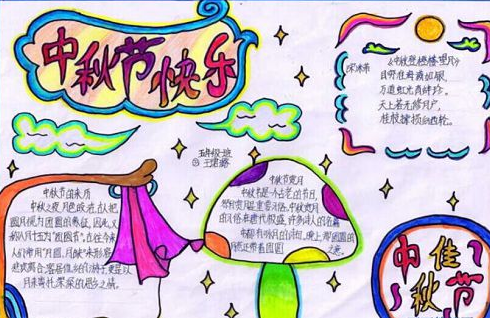 中秋节快乐
米芾
中秋登楼望月
目穷淮海满如银,
万道虹光育蚌珍。
天上若无修月户,
桂枝撑损向西轮。
五年级
中秋节的来历
中秋之夜,月色皎洁,古人把
圆月视为团圆的象征,因此,又
称八月十五为“团圆节”。古往今来,
人们常用“月圆、月缺”来形容
月来寄托深深的思乡之情。
中秋节赏月
中秋节是一个古老的节日,
中秋赏月
的风俗在唐代极盛,许多诗人的名篇
中都有咏月的诗句。
佳
中秋节